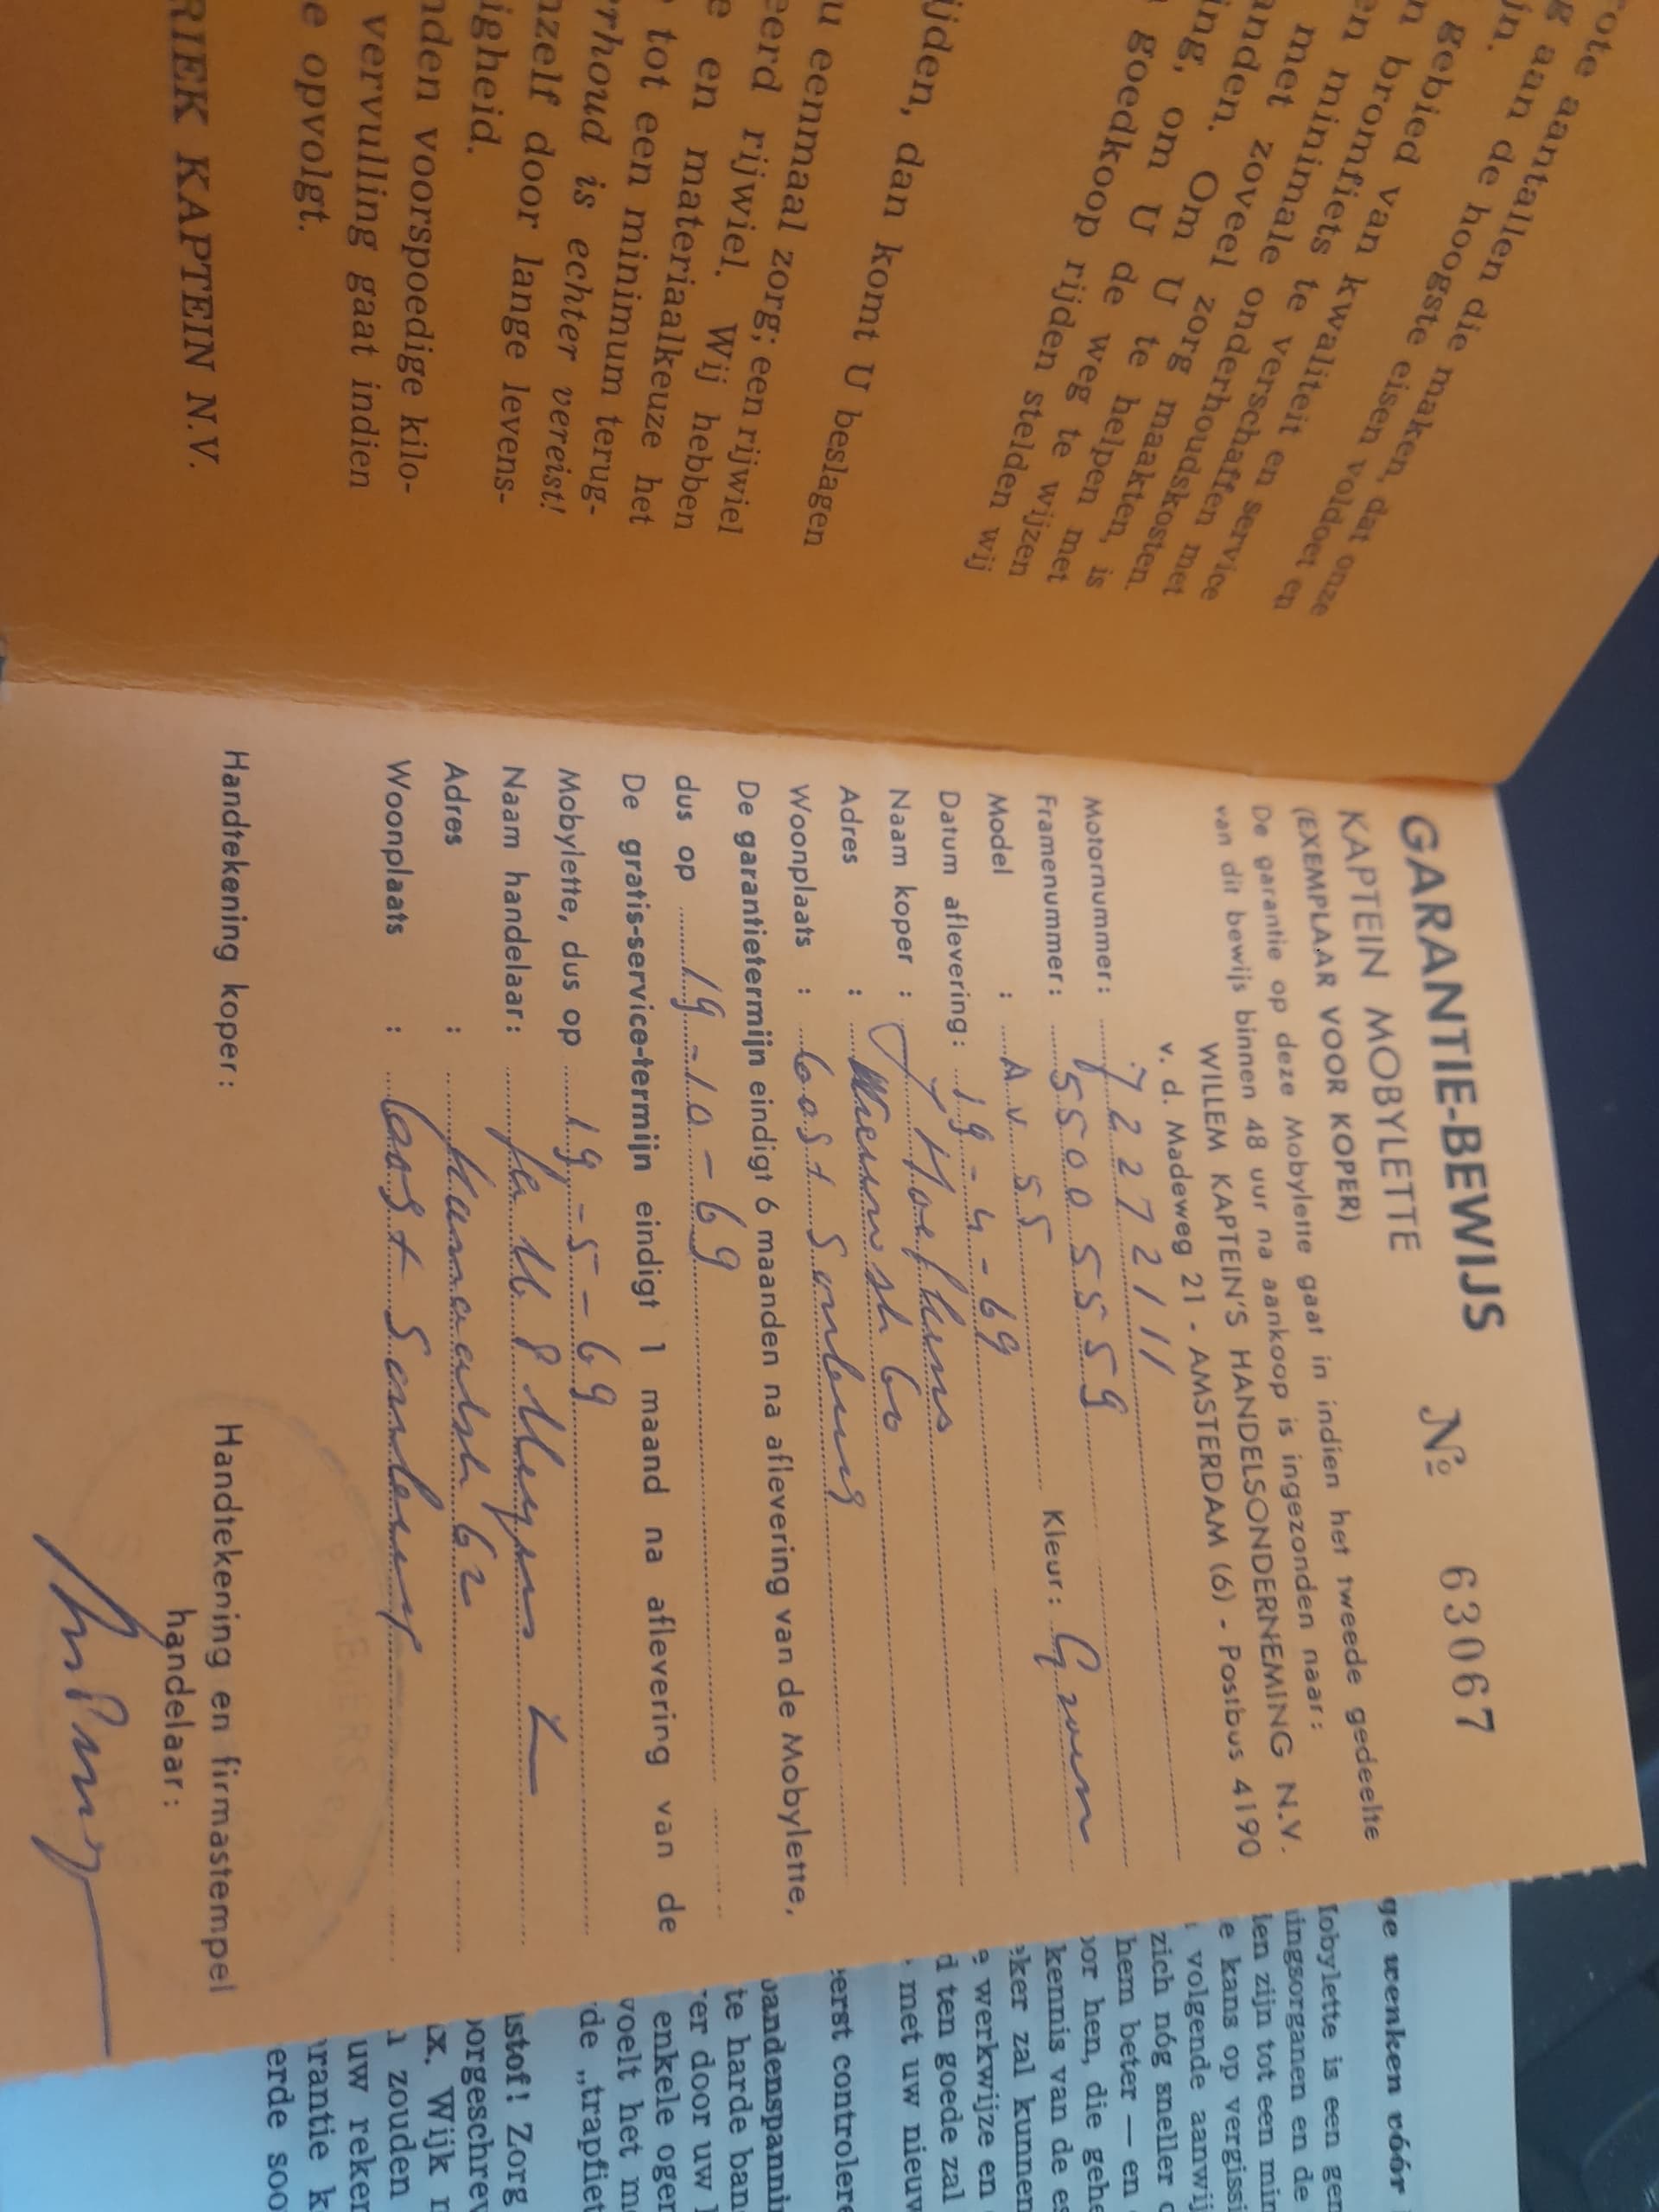 rote aantallen die maken, dat onze
g aan de hoogste eisen voldoet en
in.
gebied van kwaliteit en service
n bromfiets te verschaffen met
en minimale onderhoudskosten.
met zoveel zorg maakten, is
anden. Om U te helpen met
ing, om U de weg te wijzen
goedkoop rijden stelden wij
ijden, dan komt U beslagen
u eenmaal zorg; een rijwiel
eerd rijwiel. Wij hebben
e en materiaalkeuze het
tot een minimum terug-
rhoud is echter vereist!
nzelf door lange levens-
igheid.
nden voorspoedige kilo-
vervulling gaat indien
e opvolgt.
RIEK KAPTEIN N.V.
GARANTIE-BEWIJS № 63067
KAPTEIN MOBYLETTE
(EXEMPLAAR VOOR KOPER)
De garantie op deze Mobylette gaat in indien het tweede gedeelte
van dit bewijs binnen 48 uur na aankoop is ingezonden naar:
WILLEM KAPTEIN'S HANDELSONDERNEMING N.V.
v. d. Madeweg 21 - AMSTERDAM (6) - Postbus 4190
Motornummer: 7227211
Framenummer: 5500 5559
Model : AV 55 Kleur: Groen
Datum aflevering: 19-4-69
Naam koper :
Adres : 60
Woonplaats : Oost Souburg
De garantietermijn eindigt 6 maanden na aflevering van de Mobylette,
dus op 19-10-69
De gratis-service-termijn eindigt 1 maand na aflevering van de
Mobylette, dus op 19-5-69
Naam handelaar:
Adres : 62
Woonplaats : Oost Souburg
Handtekening koper: Handtekening en firmastempel
handelaar:
ge wenken vóór
obylette is een gen
ingsorganen en de
len zijn tot een min
e kans op vergissi
volgende aanwij
zich nóg sneller
hem beter — en
oor hen, die gehe
kennis van de es
eker zal kunnen
e werkwijze en
d ten goede zal
met uw nieuw
eerst controlere
bandenspannin
te harde ban
er door uw
enkele oger
voelt het m
de „trapfiet
stof! Zorg
orgeschrev
x. Wijk n
zouden
uw reker
rantie k
erde soo